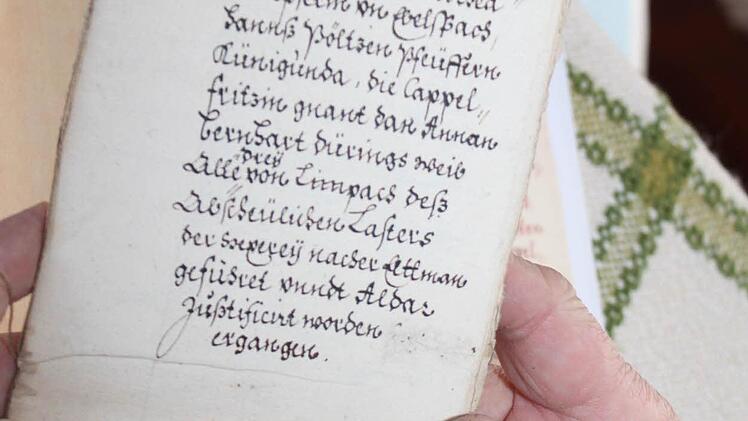 von Ebelsbach,
Hannß Pöltzen Pfeüffern
Künigunda, die Cappel,,
fritzin gnant dan Annan
bernhart dürings weib
Alle drey von Limpach deß
Abscheülichen Lasters
der hexerey nacher Eltman
geführet vnndt Aldar
Justificirt worden
ergangen.